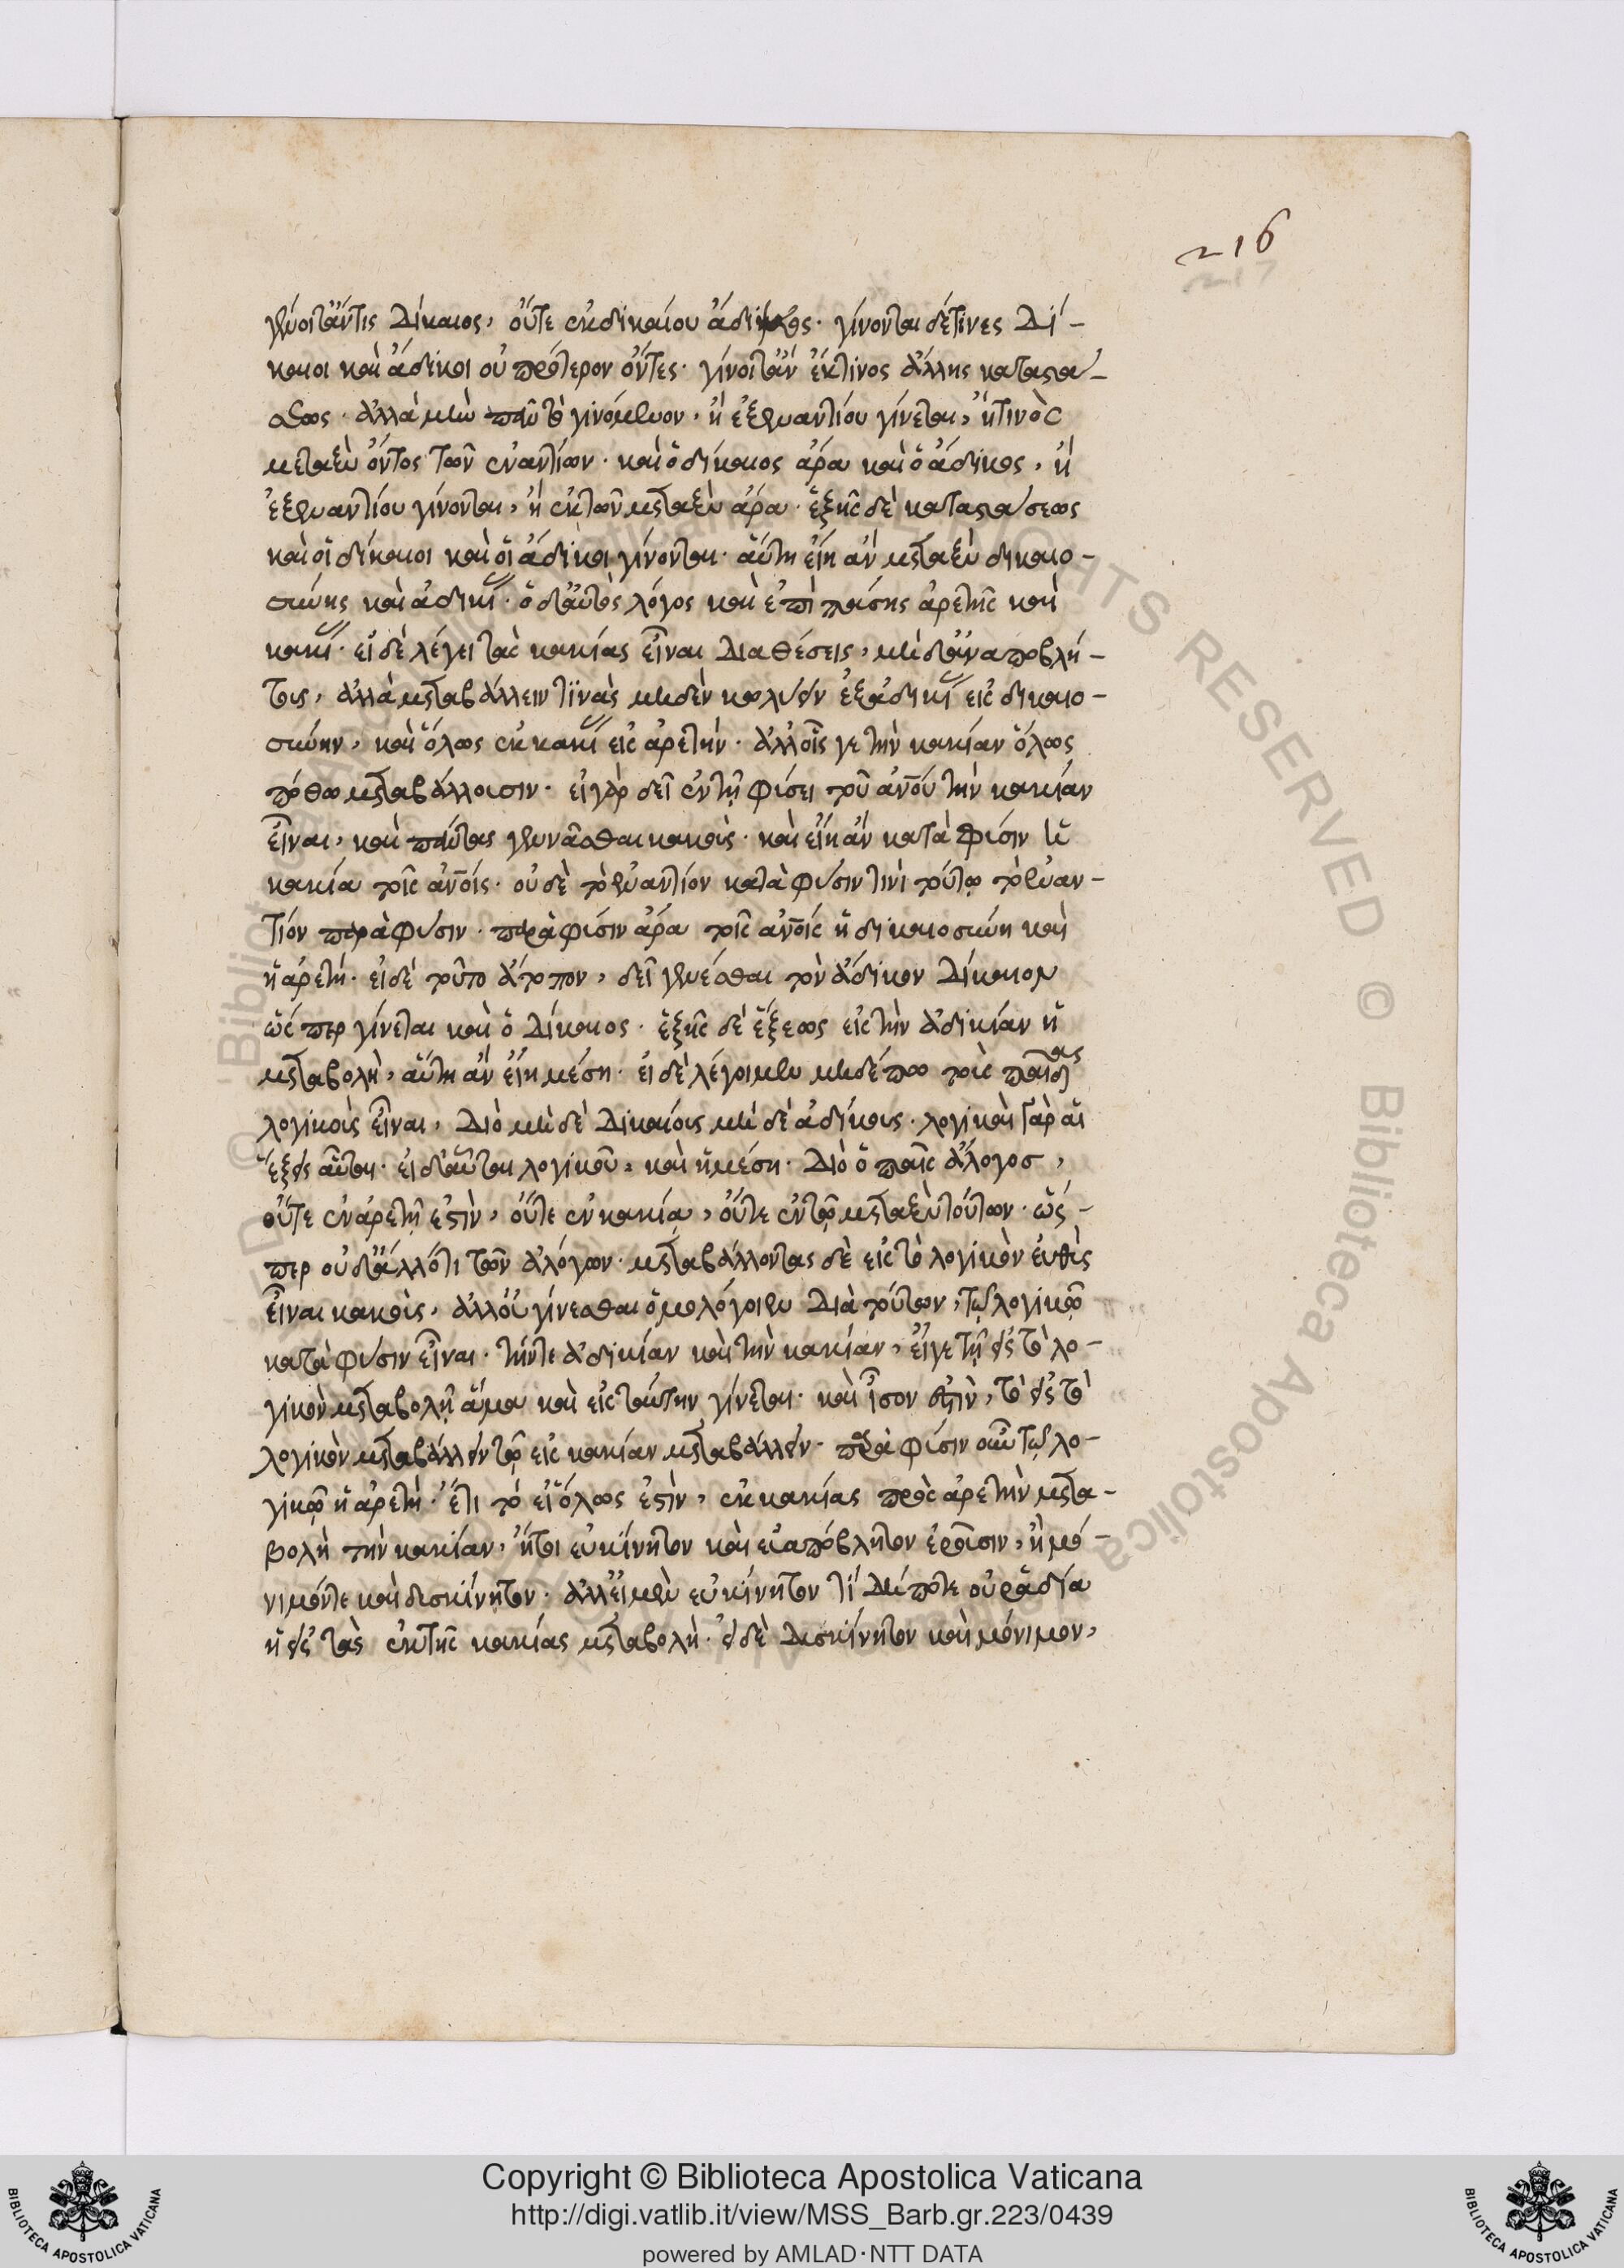 216
217
γένοιτἄν τις δίκαιος, οὔτε ἐκ δικαίου ἄδικος. γίνονται δέ τινες δί-
καιοι καὶ ἄδικοι οὐ πρότερον ὄντες. γίνοιτἂν ἔκ τινος ἄλλης καταστά-
σεως. ἀλλὰ μὴν πᾶν τὸ γινόμενον, ἢ ἐξ ἐναντίου γίνεται, ἤ τινὸς
μεταξὺ ὄντος τῶν ἐναντίων. καὶ ὁ δίκαιος ἄρα καὶ ὁ ἄδικος, ἢ
ἐξ ἐναντίου γίνονται, ἢ ἐκ τῶν μεταξὺ ἄρα. ἐξ ἧς δὲ καταστάσεως
καὶ οἱ δίκαιοι καὶ οἱ ἄδικοι γίνονται. αὕτη εἴη ἂν μεταξὺ δικαιο-
σύνης καὶ ἀδικί. ὁ δ αὐτὸς λόγος καὶ ἐπὶ πάσης ἀρετῆς καὶ
κακί. εἰ δὲ λέγει τὰς κακίας εἶναι διαθέσεις, μὴ δ ἀναποβλή-
τοις, ἀλλὰ μεταβάλλειν τινὰς μηδὲν κωλύειν ἐξ ἀδικί εἰς δικαιο-
σύνην, καὶ ὅλως ἐκ κακί εἰς ἀρετήν. ἀλλ οἵς γε τὴν κακίαν ὅλως
πόθω μεταβάλλοισιν. εἰ γὰρ δεῖ ἐν τῇ φύσει τοῦ ἀνου τὴν κακίαν
εἶναι, καὶ πάντας γεννᾶσθαι κακοὺς. καὶ εἴη ἂν κατὰ φύσιν ἡ
κακία τοῖς ἀνοις. οὐ δὲ τὸ ἐναντίον κατὰ φύσιν τινὶ τούτῳ τὸ ἐναν-
τίον παρὰ φύσιν. παρὰ φύσιν ἄρα τοῖς ἀνοις ἡ δικαιοσύνη καὶ
ἡ ἀρετή. εἰ δὲ τοῦτο ἄτοπον, δεῖ γενέσθαι τὸν ἄδικον δίκαιον
ὥς περ γίνεται καὶ ὁ δίκαιος. ἐξ ἧς δὲ ἕξεως εἰς τὴν ἀδικίαν ἡ
μεταβολὴ, αὕτη ἂν εἴη μέση. εἰ δὲ λέγοιμεν μηδέπω τοὺς παῖδας
λογικοὺς εἶναι, διὸ μὴ δὲ δικαίοις μὴ δὲ ἀδίκοις. λογικαὶ γὰρ αἱ
ἕξεις αὗται. εἰ δ αὗται λογικοῦ, καὶ ἡ μέση. διὸ ὁ παῖς ἄλογος,
οὔτε ἐν ἀρετῇ ἐστὶν, οὔτε ἐν κακίᾳ, οὔτε ἐν τῷ μεταξὺ τούτων. ὥς-
περ οὐ δ ἄλλό τι τῶν ἀλόγων. μεταβάλλοντας δὲ εἰς τὸ λογικὸν εὐθὺς
εἶναι κακοὺς, ἀλλ οὐ γίνεσθαι ὁμολόγοιεν διὰ τούτων, τῷ λογικῷ
κατὰ φύσιν εἶναι. τήν τε ἀδικίαν καὶ τὴν κακίαν, εἴγε τῇ εἰς τὸ λο-
γικὸν μεταβολῇ ἅμα καὶ εἰς ταύτην γίνεται. καὶ ἶσον ἐστὶν, τὸ εἰς τὸ
λογικὸν μεταβάλλειν τῷ εἰς κακίαν μεταβάλλειν. παρὰ φύσιν οὖν τῷ λο-
γικῷ ἡ ἀρετή. ἔτι τό εἰ ὅλως ἐστὶν, ἐκ κακίας πρὸς ἀρετὴν μετα-
βολὴ τὴν κακίαν, ἤτοι εὐκίνητον καὶ εὐαπόβλητον ἐροῦσιν, ἢ μό-
νιμόν τε καὶ δυσκίνητον. ἀλλ εἰ μὲν εὐκίνητον τί δή ποτε οὐ ῥᾳδία
ἡ εἰς τὰς ἐκ τῆς κακίας μεταβολὴ. εἰ δὲ δυσκίνητον καὶ μόνιμον,
Copyright © Biblioteca Apostolica Vaticana
http://digi.vatlib.it/view/MSS_Barb.gr.223/0439
powered by AMLAD·NTT DATA